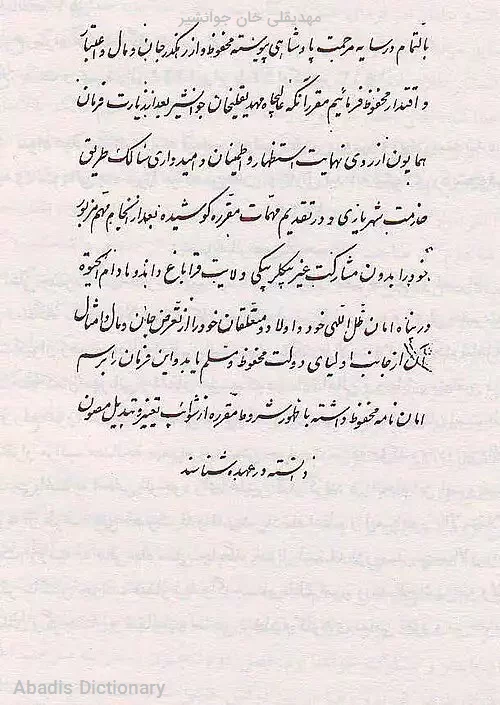 مهدیقلی خان جوانشیر
بالتمام در سایه مرحمت پادشاهی پیوسته محفوظ و از رهگذر جان و مال و اعتبار
و اقتدار محفوظ فرمائیم مقرر آنکه عالیجاه مهدیقلیخان جوانشیر بعد از زیارت فرمان
همایون از روی نهایت استظهار و اطمینان و امیدواری سالک طریق
خدمت شهریاری و در تقدیم مهمات مقرره کوشیده بعد از انجام مهم مزبور
خود را بدون مشارکت غیر بیگلربیگی ولایت قراباغ داند و مادام الحیوة
در پناه امان ظل اللهی خود و اولاد و متعلقان خود را از تعرض جان و مال و امثال
آن از جانب اولیای دولت محفوظ و مسلم یابد و این فرمان را برسم
امان نامه محفوظ داشته با ظهور شروط مقرره از شوائب تغییر و تبدیل مصون
دانسته در عهده شناسند
Abadis Dictionary